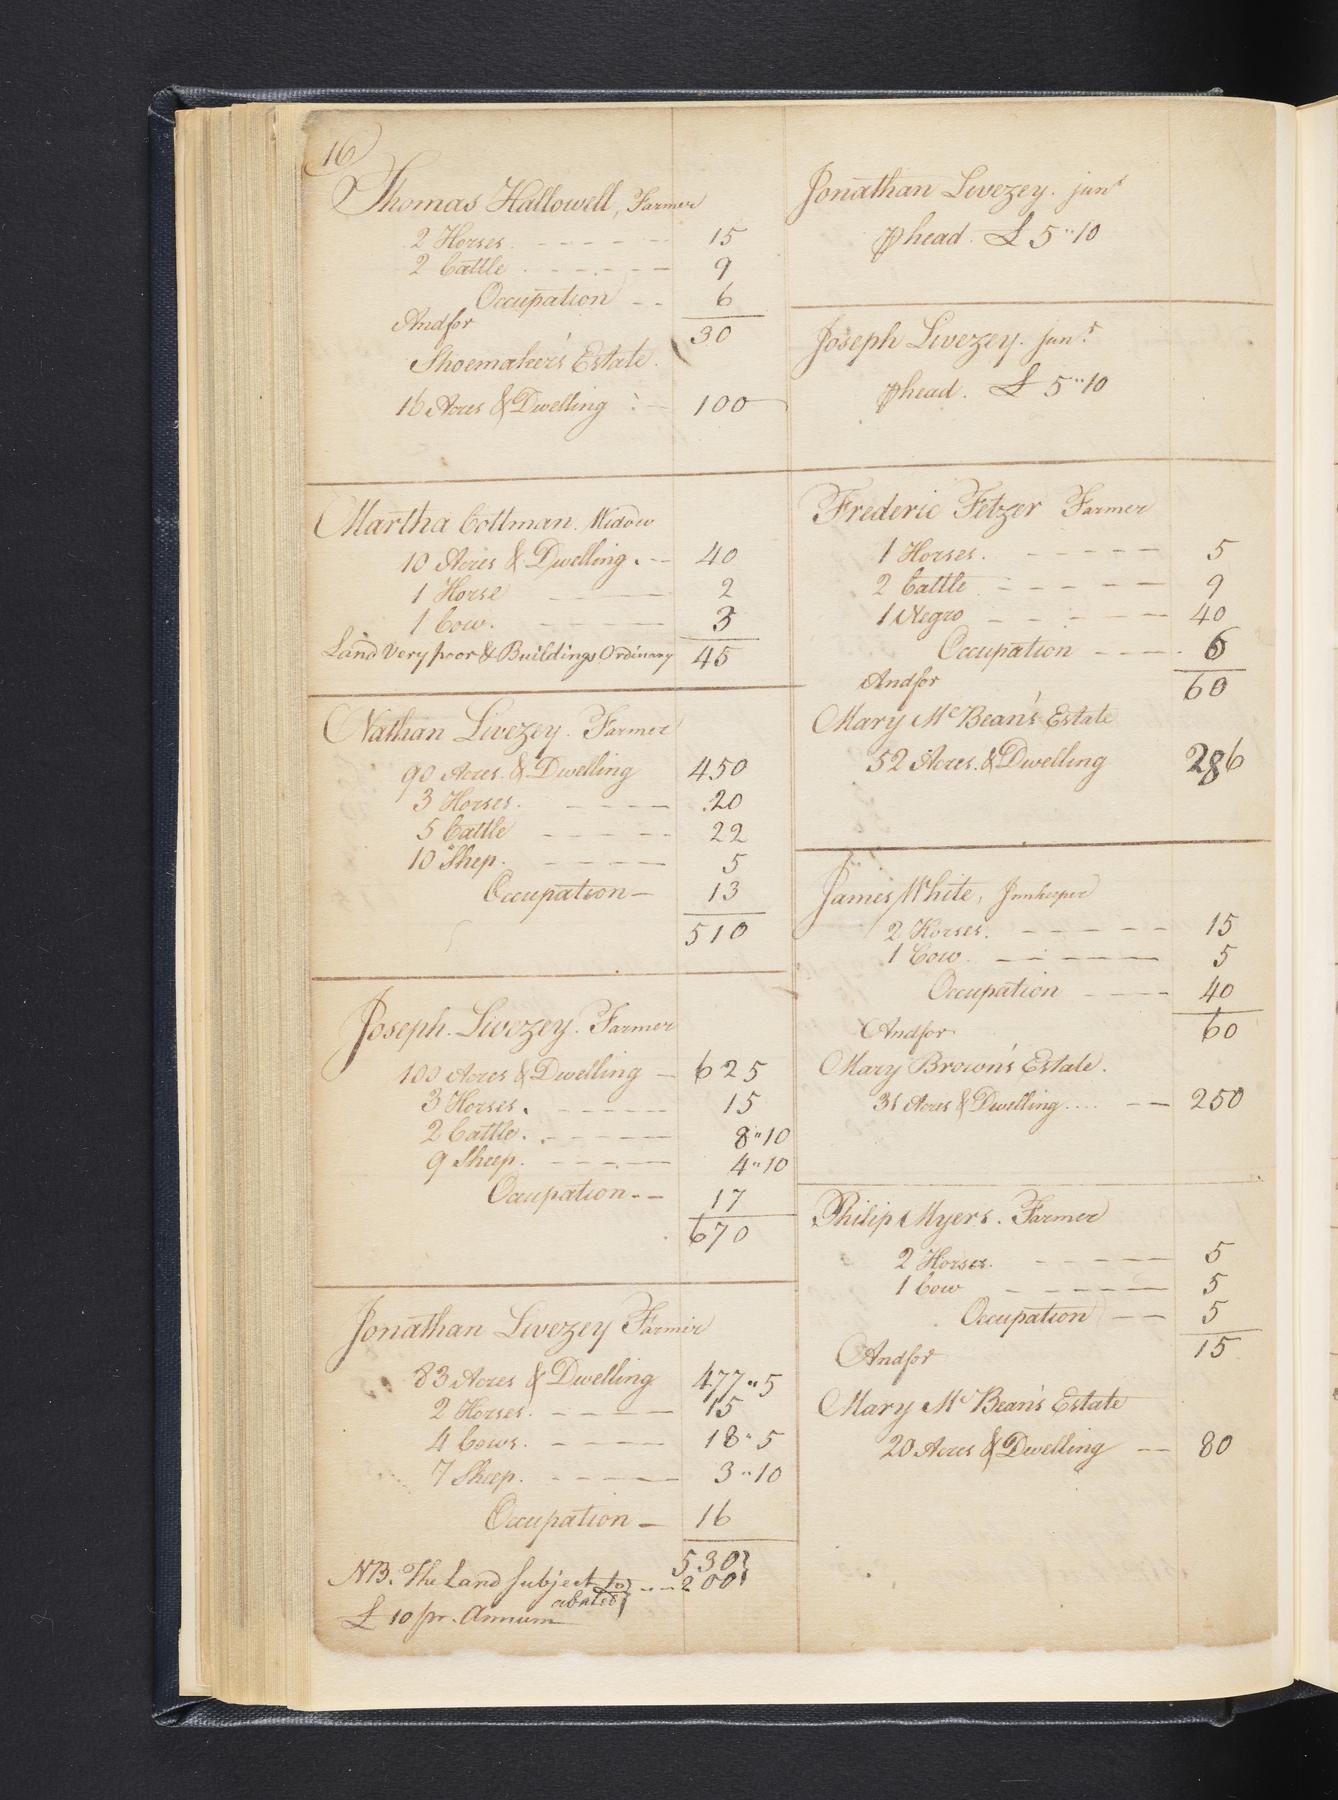 16
Thomas Hallowell, Farmer
2 Horses. - - - - - 15
2 Cattle - - - - - 9
Occupation - - 6
30
Andfor
Shoemaker's Estate.
16 Acres & Dwelling 100
Martha Cottman. Widow
10 Acres & Dwelling. -- 40
1 Horse - - - - 2
1 Cow. - - - - 3
Land Very poor & Buildings Ordinary 45
Nathan Livezey. Farmer
90 Acres. & Dwelling 450
3 Horses. - - - - 20
5 Cattle - - - - 22
10 Shep. - - - - 5
Occupation - 13
510
Joseph. Livezey. Farmer
100 Acres & Dwelling - 625
3 Horses. - - - - - 15
2 Cattle. - - - - - 8"10
9 Sheep. - - - - - 4"10
Occupation - - 17
670
Jonathan Livezey Farmer
83 Acres & Dwelling 477"5
2 Horses. - - - - 15
4 Cows. - - - - 18"5
7 Sheep. - - - - - 3"10
Occupation - 16
530
NB. The Land Subject to abated - - - 200
£ 10 pr. Annum
Jonathan Livezey. junr
⅌ head. £ 5"10
Joseph Livezey. junr
⅌ head. £ 5"10
Frederic Fetzer Farmer
1 Horses. - - - - - 5
2 Cattle - - - - - 9
1 Negro - - - - - 40
Occupation - - - - 6
60
Andfor
Mary McBean's Estate
52 Acres. & Dwelling 286
James White, Innkeeper
2 Horses. - - - - - 15
1 Cow. - - - - - 5
Occupation - - - - 40
Andfor 60
Mary Brown's Estate.
31 Acres & Dwelling.... - - 250
Philip Myers. Farmer
2 Horses. - - - - - 5
1 Cow - - - - - 5
Occupation - - 5
Andfor 15
Mary McBean's Estate
20 Acres & Dwelling - - 80